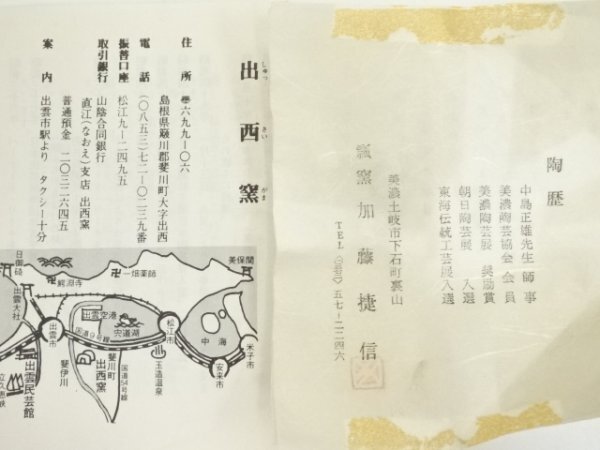 陶歴
中島正雄先生 師事
美濃陶芸協会 会員
美濃陶芸展 奨励賞
朝日陶芸展 入選
東海伝統工芸展入選
美濃土岐市下石町裏山
窯 加藤捷信
TEL 五七―二二四六
出西窯
しゅっさいがま
住所 〒六九九―〇六
島根県簸川郡斐川町大字出西
電話 (〇八五三)七二―〇二三九番
振替口座 松江九―二四九五
取引銀行 山陰合同銀行
直江(なおえ)支店 出西窯
普通預金 二〇三二六四五
案内 出雲市駅より タクシー十分
日御碕
鰐淵寺
一畑薬師
美保関
出雲大社
出雲市
出雲空港
宍道湖
国道9号線
松江市
中海
米子市
安来市
玉造温泉
国道54号線
斐川町
出西窯
斐伊川
出雲民芸館
立久恵峡